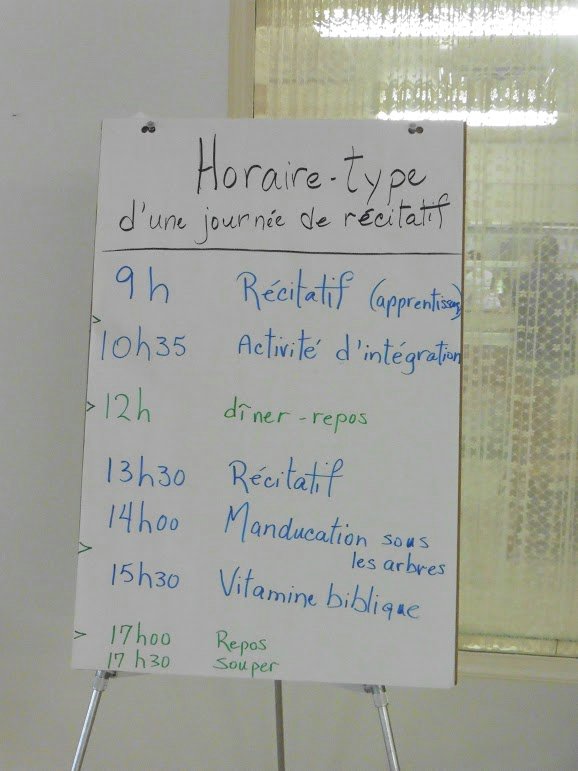 Horaire-type
d'une journée de récitatif
9h Récitatif (apprentissag
>
10h35 Activité d'intégration
> 12h dîner-repos
13h30 Récitatif
14h00 Manducation sous
les arbres
>
15h30 Vitamine biblique
> 17h00 Repos
17h30 souper